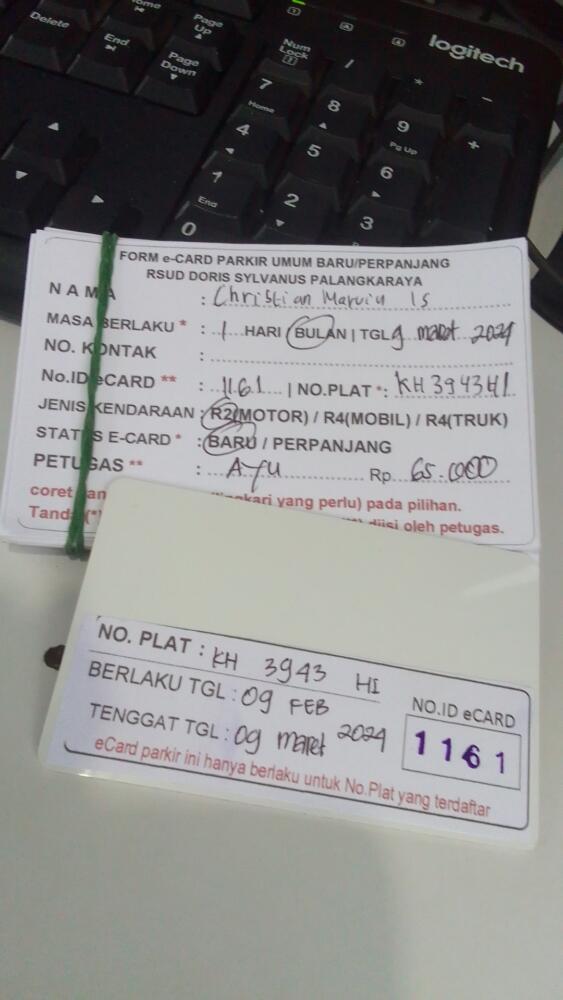 Delete
Home
Page Up
End
Page Down
Num Lock
logitech
/
*
-
7 Home
8
9 Pg Up
+
4
5
6
1 End
2
3
0
FORM e-CARD PARKIR UMUM BARU/PERPANJANG
RSUD DORIS SYLVANUS PALANGKARAYA
NAMA : Christian Marviu Is
MASA BERLAKU * : 1 HARI BULAN | TGL 9 maret 2024
NO. KONTAK :
No.ID eCARD ** : 1161 | NO.PLAT *: KH 3943 HI
JENIS KENDARAAN : R2(MOTOR) / R4(MOBIL) / R4(TRUK)
STATUS E-CARD * : BARU / PERPANJANG
PETUGAS ** : AYU Rp 65.000
coret yang perlu) pada pilihan.
Tanda (*) diisi oleh petugas.
NO. PLAT : KH 3943 HI
BERLAKU TGL : 09 FEB
TENGGAT TGL : 09 maret 2024
NO.ID eCARD
1161
eCard parkir ini hanya berlaku untuk No.Plat yang terdaftar